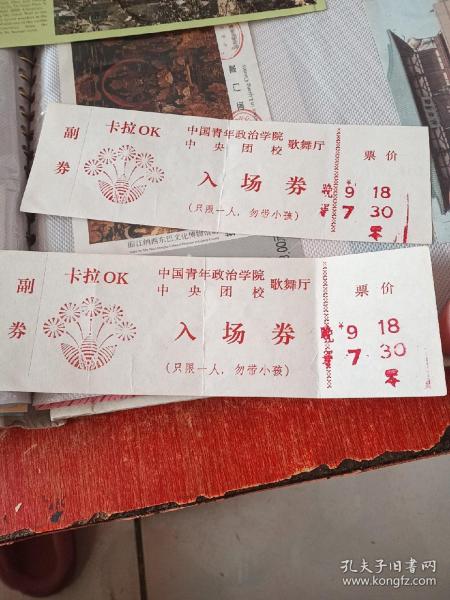 副券
卡拉OK
中国青年政治学院
中央团校
歌舞厅
入场券
(只限一人，勿带小孩)
票价
晚 9 18
7 30
零
副券
卡拉OK
中国青年政治学院
中央团校
歌舞厅
入场券
(只限一人，勿带小孩)
票价
晚 9 18
7 30
零
孔夫子旧书网
www.kongfz.com